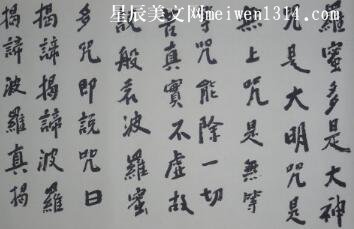 星辰美文网meiwen1314.com
羅蜜多是大神
咒是大明咒是
無上咒是無等
等咒能除一切
苦真實不虛故
說般若波羅蜜
多咒即說咒曰
揭諦揭諦波羅
揭諦波羅揭